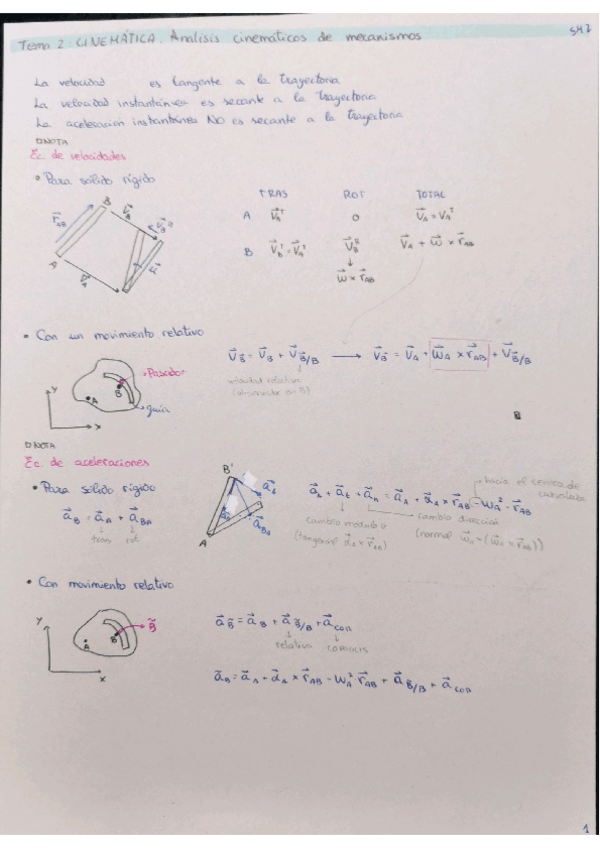 Tema 2: CINEMÁTICA. Análisis cinemáticos de mecanismos
La velocidad es tangente a la trayectoria
La velocidad instantánea es secante a la trayectoria
La aceleración instantánea NO es secante a la trayectoria
NOTA
Ec. de velocidades
• Para sólido rígido
TRAS ROT TOTAL
A V⃗_A^T 0 V⃗_A = V_A^T
B V⃗_B^T = V⃗_A^T V⃗_B^R V⃗_A + ω⃗ × r⃗_AB
↓
ω⃗ × r⃗_AB
r⃗_AB B V⃗_B V⃗_B^R
A V⃗_A
• Con un movimiento relativo
V⃗_B̃ = V⃗_B + V⃗_B̃/B → V⃗_B̃ = V⃗_A + ω⃗_A × r⃗_AB + V⃗_B̃/B
velocidad relativa
(observador en B)
Pasador
Y A B
guía
X
NOTA
Ec. de aceleraciones
• Para sólido rígido
a⃗_B = a⃗_A + a⃗_BA
tras rot
B' a⃗_t
a⃗_BA
A
hacia el centro de curvatura
a⃗_t + a⃗_n = a⃗_A + α⃗_A × r⃗_AB - ω_A² · r⃗_AB
cambio módulo
(tangencial α⃗_A × r⃗_AB)
cambio dirección
(normal ω⃗_A × (ω⃗_A × r⃗_AB))
• Con movimiento relativo
Y A B B̃
X
a⃗_B̃ = a⃗_B + a⃗_B̃/B + a⃗_COR
relativa coriolis
a⃗_B = a⃗_A + α⃗_A × r⃗_AB - ω_A² r⃗_AB + a⃗_B̃/B + a⃗_COR
1